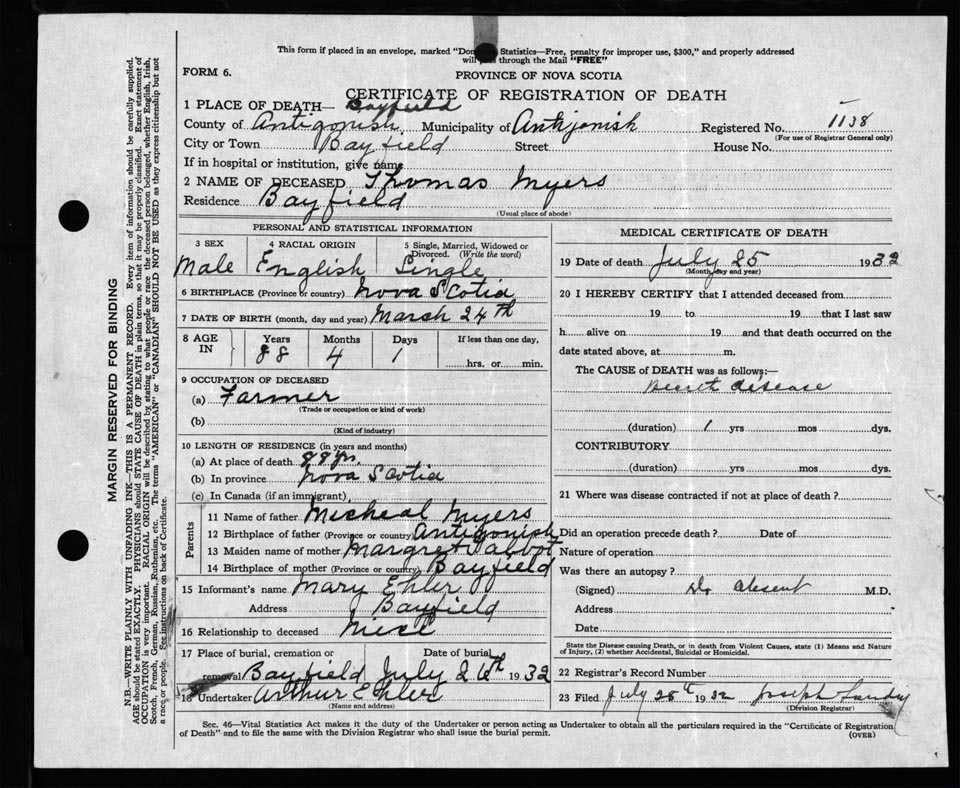 This form if placed in an envelope, marked "Dom Statistics—Free, penalty for improper use, $300," and properly addressed
will pass through the Mail "FREE"
FORM 6.
PROVINCE OF NOVA SCOTIA
CERTIFICATE OF REGISTRATION OF DEATH
1 PLACE OF DEATH— Bayfield
County of Antigonish Municipality of Antigonish Registered No. 1138
(For use of Registrar General only)
City or Town Bayfield Street House No.
If in hospital or institution, give name
2 NAME OF DECEASED Thomas Myers
Residence Bayfield
(Usual place of abode)
PERSONAL AND STATISTICAL INFORMATION
3 SEX 4 RACIAL ORIGIN 5 Single, Married, Widowed or Divorced. (Write the word)
Male English Single
6 BIRTHPLACE (Province or country) Nova Scotia
7 DATE OF BIRTH (month, day and year) March 24th
8 AGE IN Years Months Days If less than one day,
88 4 1 hrs. or min.
9 OCCUPATION OF DECEASED
(a) Farmer
(Trade or occupation or kind of work)
(b)
(Kind of industry)
10 LENGTH OF RESIDENCE (in years and months)
(a) At place of death 88 yrs.
(b) In province Nova Scotia
(c) In Canada (if an immigrant)
Parents
11 Name of father Micheal Myers
12 Birthplace of father (Province or country) Antigonish
13 Maiden name of mother Margret Talbot
14 Birthplace of mother (Province or country) Bayfield
15 Informant's name Mary Ehler
Address Bayfield
16 Relationship to deceased Niece
17 Place of burial, cremation or removal Date of burial
Bayfield July 26th 1932
18 Undertaker Arthur Ehler
(Name and address)
MEDICAL CERTIFICATE OF DEATH
19 Date of death July 25 1932
(Month, day and year)
20 I HEREBY CERTIFY that I attended deceased from
19 to 19 that I last saw
h alive on 19 and that death occurred on the
date stated above, at m.
The CAUSE of DEATH was as follows:—
Heart disease
(duration) 1 yrs mos dys.
CONTRIBUTORY
(duration) yrs mos dys.
21 Where was disease contracted if not at place of death?
Did an operation precede death? Date of
Nature of operation
Was there an autopsy?
(Signed) Dr absent M.D.
Address
Date
State the Disease causing Death, or in death from Violent Causes, state (1) Means and Nature
of Injury, (2) whether Accidental, Suicidal or Homicidal.
22 Registrar's Record Number
23 Filed July 28th 1932 Joseph
(Division Registrar)
Sec. 46—Vital Statistics Act makes it the duty of the Undertaker or person acting as Undertaker to obtain all the particulars required in the "Certificate of Registration
of Death" and to file the same with the Division Registrar who shall issue the burial permit.
(OVER)
MARGIN RESERVED FOR BINDING
N.B.—WRITE PLAINLY WITH UNFADING INK—THIS IS A PERMANENT RECORD. Every item of information should be carefully supplied.
AGE should be stated EXACTLY. PHYSICIANS should STATE CAUSE OF DEATH in plain terms, so that it may be properly classified. Exact statement of
OCCUPATION is very important. RACIAL ORIGIN will be described by stating to what people or race the deceased person belonged, whether English, Irish,
Scotch, French, German, Russian, Ruthenian, etc. The terms "AMERICAN" or "CANADIAN" SHOULD NOT BE USED as they express citizenship but not
a race or people. See instructions on back of Certificate.